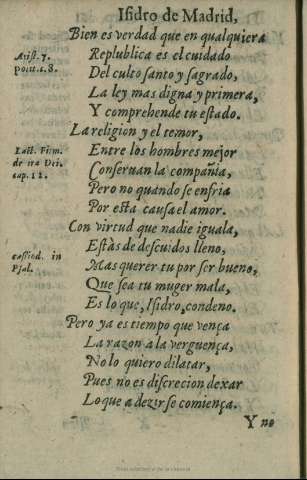 Isidro de Madrid,
Bien es verdad que en qualquiera
Arist. 7.
polit. c. 8.
Republica es el cuidado
Del culto santo y sagrado,
La ley mas digna y primera,
Y comprehende tu estado.
La religion y el temor,
Lact. Firm.
de ira Dei.
cap. 12.
Entre los hombres mejor
Conseruan la compañia,
Pero no quando se enfria
Por esta causa el amor.
Con virtud que nadie iguala,
Estàs de descuidos lleno,
cassiod. in
Psal.
Mas querer tu por ser bueno,
Que sea tu muger mala,
Es lo que, Isidro, condeno.
Pero ya es tiempo que vença
La razon a la verguença,
No lo quiero dilatar,
Pues no es discrecion dexar
Lo que a dezir se comiença.
Y no